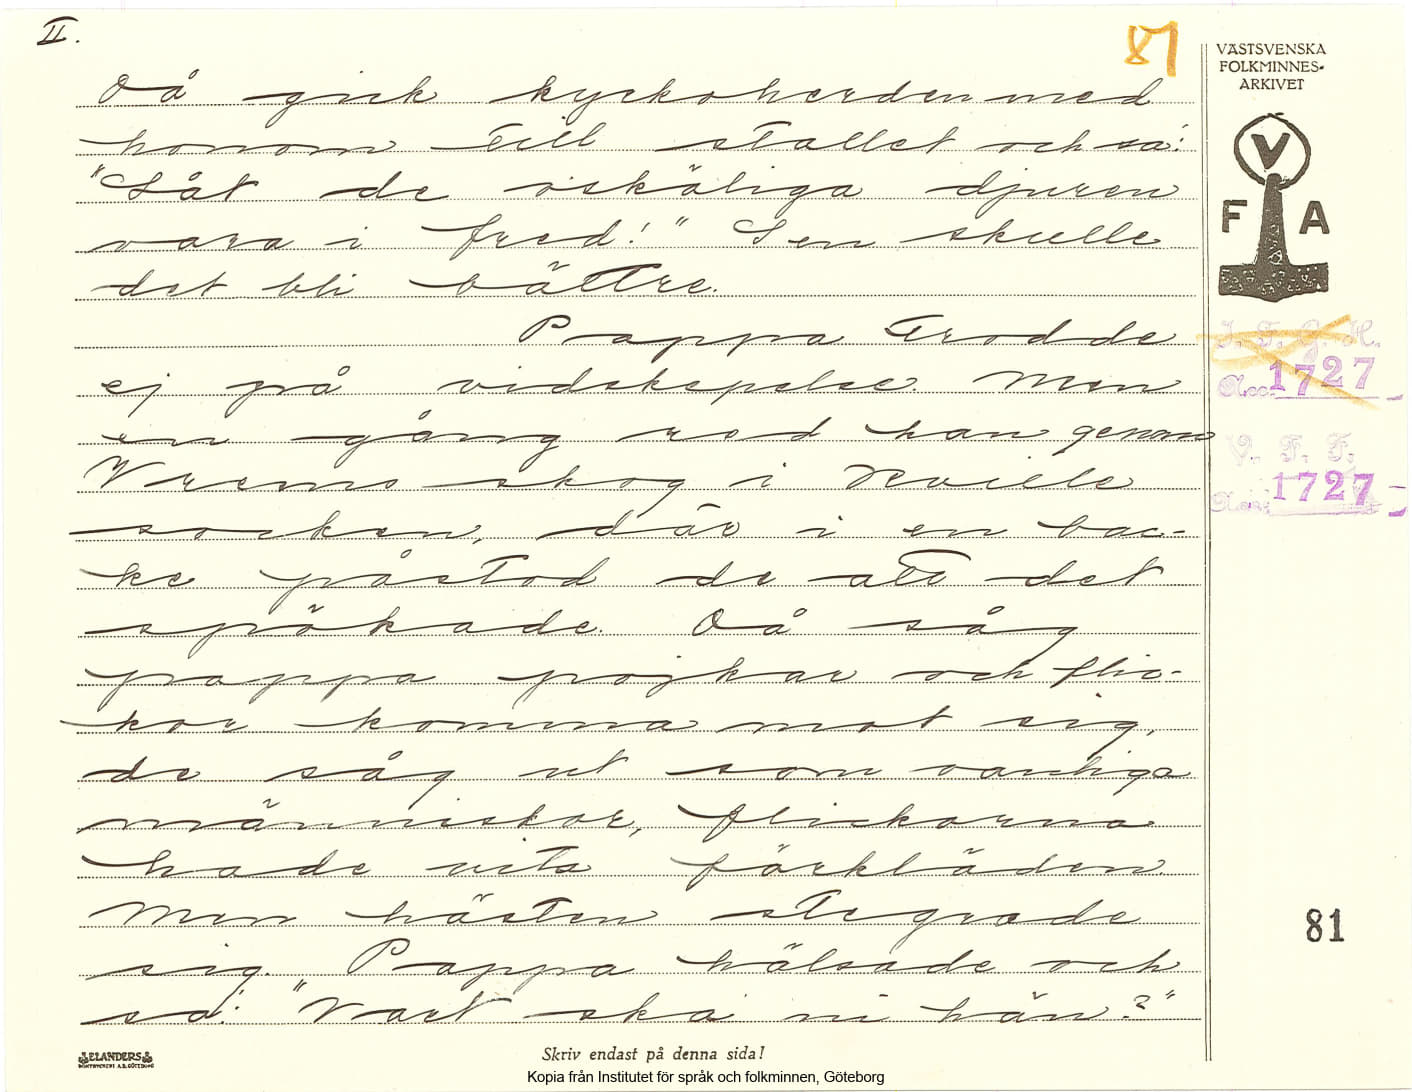 II.
81
VÄSTSVENSKA
FOLKMINNES-
ARKIVET
V
F A
Då gick kyrkoherden med
honom till stallet och sa:
"Låt de oskäliga djuren
vara i fred!" Sen skulle
det bli bättre.
Pappa trodde
ej på vidskepelse. Men
en gång red han genom
Vrems skog i
socken, där i en bac-
ke påstod de att det
spökade. Då såg
pappa pojkar och flic-
kor komma mot sig,
de såg ut som vanliga
människor, flickorna
hade vita förkläden.
Men hästen stegrade
sig. Pappa hälsade och
sa: "Vart ska ni hän?"
I. F. G. H.
Acc. 1727
V. F. F.
Acc. 1727
81
ELANDERS
BOKTRYCKERI A.B. GÖTEBORG
Skriv endast på denna sida!
Kopia från Institutet för språk och folkminnen, Göteborg